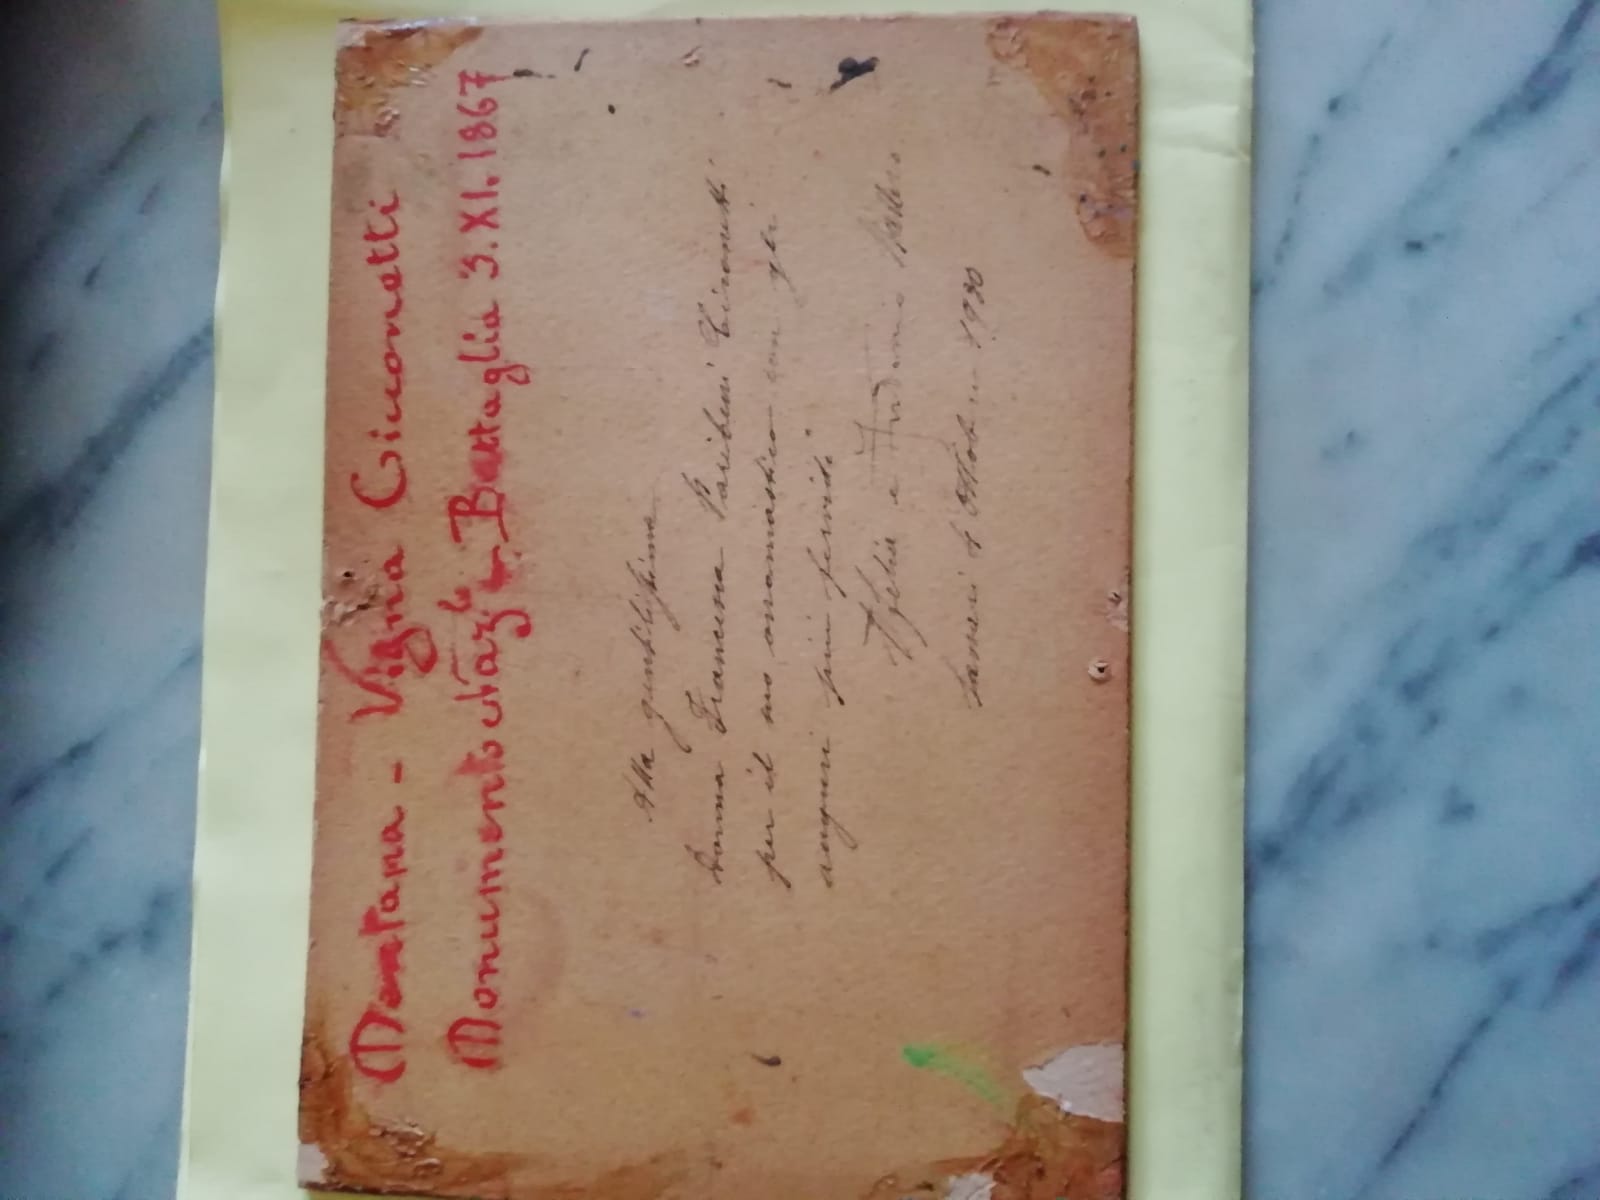 Mentana - Vigna Cicconetti
Monumento Naz.le - Battaglia 3.XI.1867
Alla gentilissima
donna Francesca Paribeni
per il suo onomastico con gli
auguri più fervidi.
e
1930